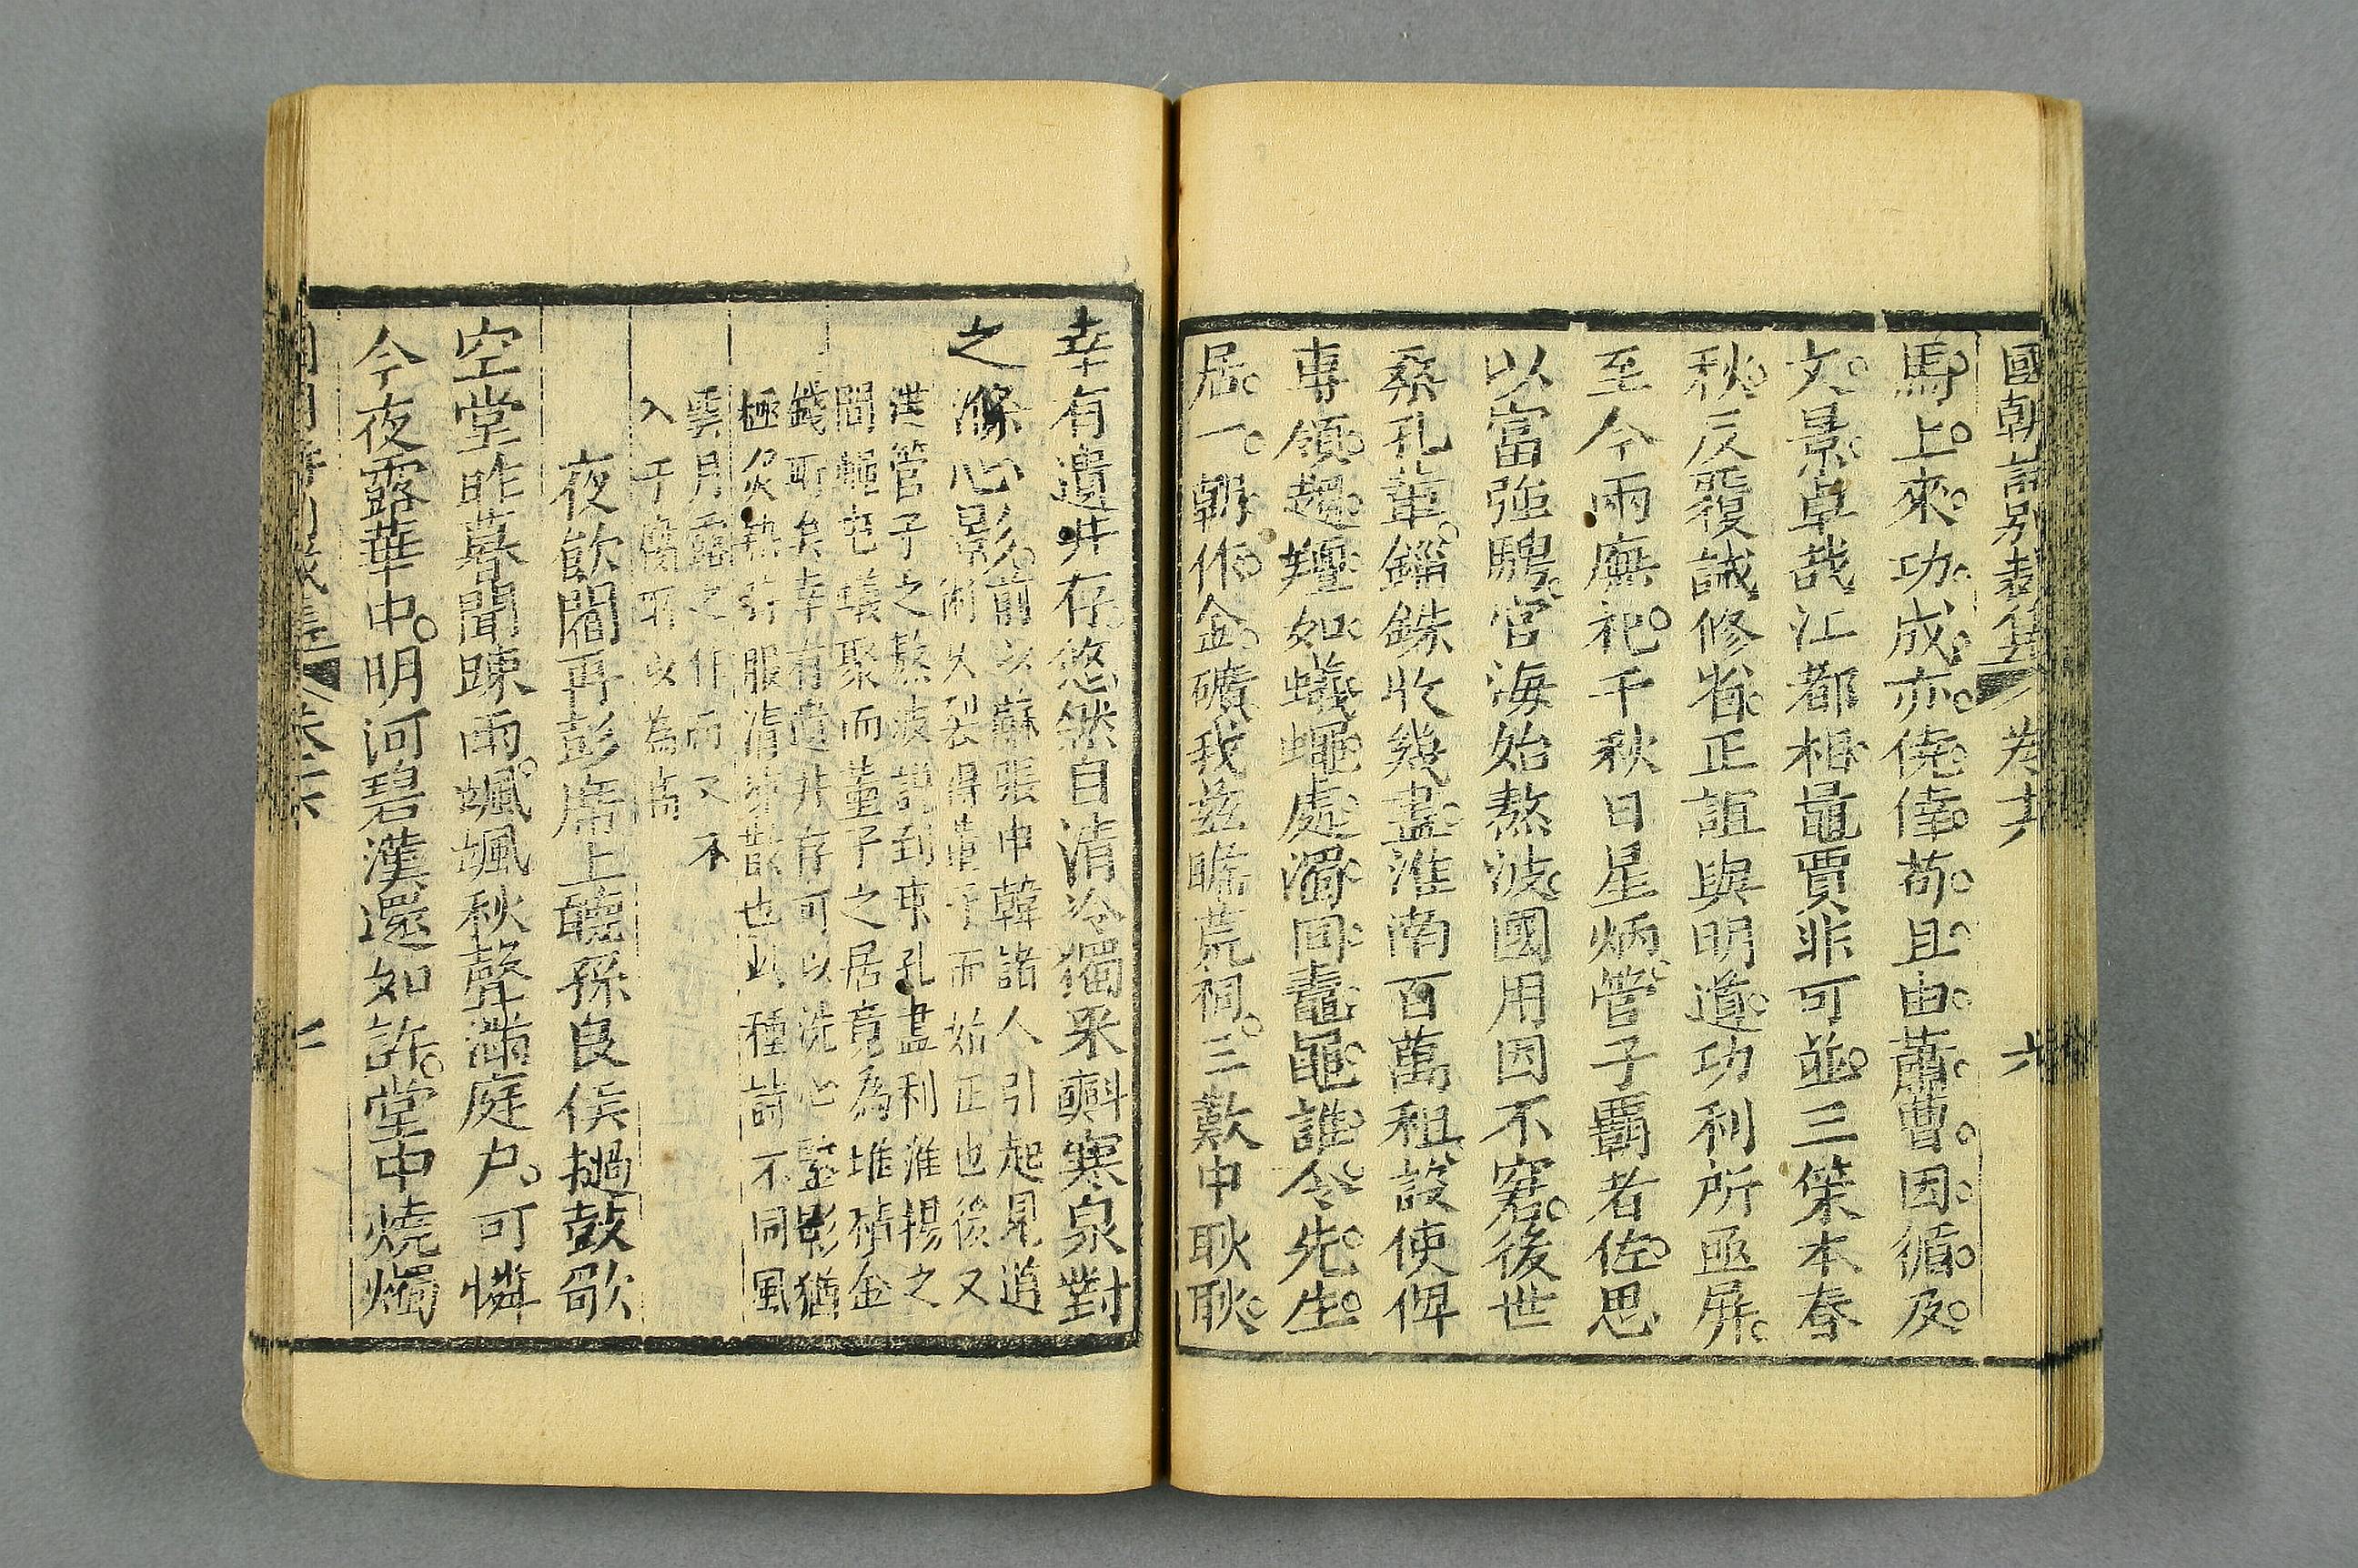 國朝詩別裁集 卷十六 六
馬上來功成亦僥倖苟且由蕭曹因循及
文景卓哉江都相鼂賈非可並三策本春
秋反覆誡修省正誼與明道功利所亟屏
至今兩廡祀千秋日星炳管子霸者佐思
以富強騁官海始熬波國用因不窘後世
桑孔輩錙銖收幾盡淮南百萬租設使俾
專領趨羶如蟻蠅處濁同鼃黽誰令先生
居一朝作金礦我茲瞻荒祠三歎申耿耿
幸有遺井存悠然自清冷獨罘㪺寒泉對
之滌心影
前以蘇張申韓諸人引起見道
術火裂得董子而始正也後又
從管子之熬波說到桑孔盡利淮揚之
間蠅屯蟻聚而董子之居竟為堆積金
錢所矣幸有遺井存可以洗心鑒影猶
極炎熱行服清涼散也此種詩不同風
雲月露之作而又不
入于腐所以為高
夜飲閻再彭席上聽孫良侯撾鼓歌
空堂昨暮聞疎雨颯颯秋聲滿庭户可憐
今夜露華中明河碧漢還如許堂中燒燭